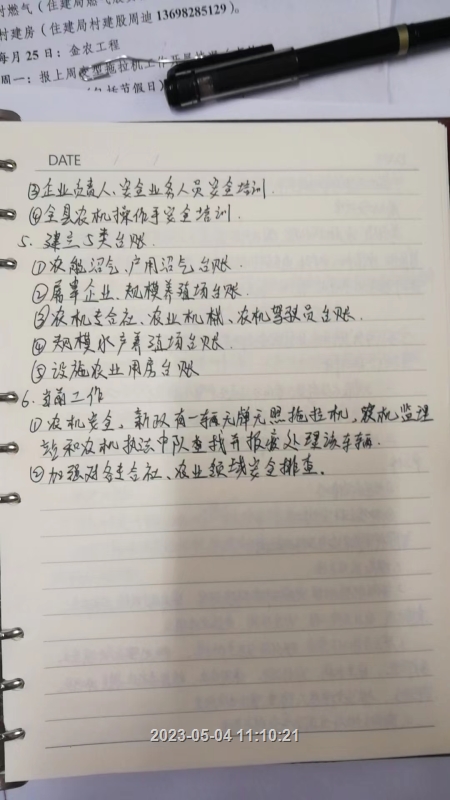 村燃气(住建局燃气
村建房(住建局村建股周迪 13698285129)。
每月25日:金农工程
周一:报上周
(包括节假日)
DATE / /
③企业负责人、安全业务人员安全培训.
④全县农机操作手安全培训.
5. 建立5类台账.
①农能沼气、户用沼气台账.
②屠宰企业、规模养殖场台账.
③农机专合社、农业机械、农机驾驶员台账.
④规模水产养殖场台账.
⑤设施农业用房台账
6. 当前工作
①农机安全,新政有一辆无牌无照拖拉机,农机监理
站和农机执法中队查找并报废处理该车辆.
②加强对各专合社、农业领域安全排查.
2023-05-04 11:10:21